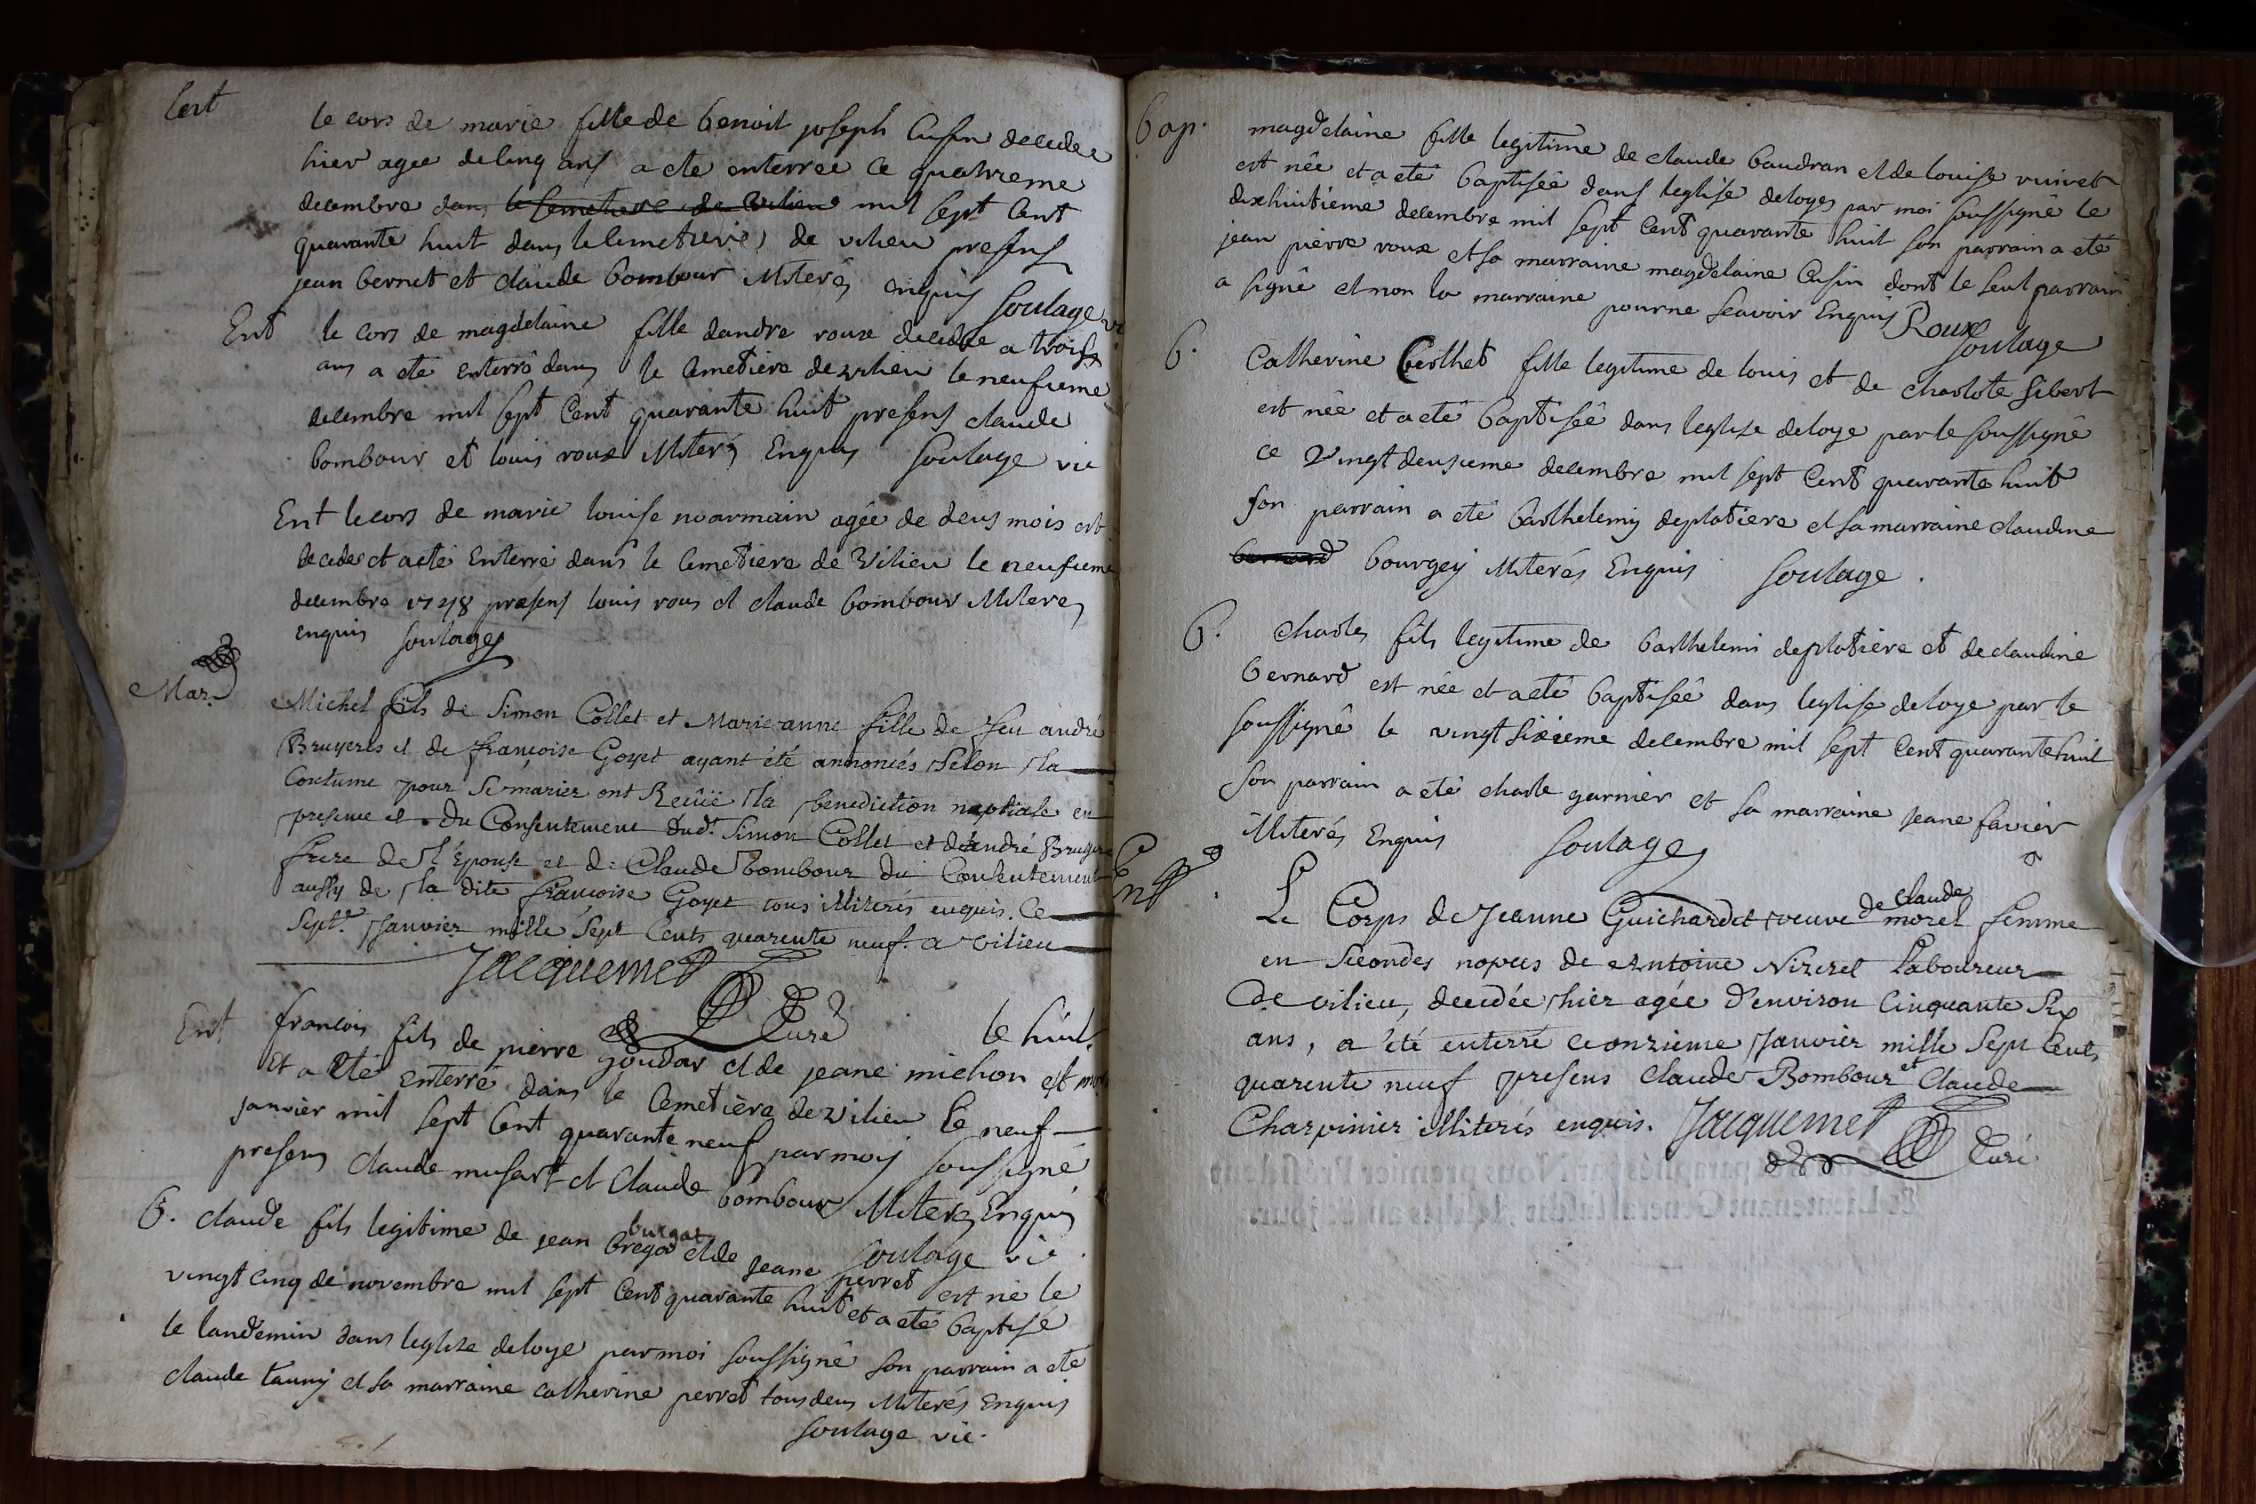 Ent
le cors de marie fille de benoit joseph Cusin decedee
hier agee de cinq ans a ete enterree ce quatrieme
decembre dans le cemetiere de vilieu mil sept cent
quarante huit dans le cimetiere de vilieu presens
jean bernet et claude bombour illiterés enquis
soulage vi
Ent le cors de magdelaine fille dandre roux decedee a trois
ans a ete enterrô dans le cimetiere de vilieu le neufieme
decembre mil sept cent quarante huit presens claude
bombour et louis roux illiterés Enquis soulage vic
Ent le cors de marie louise noarmain agée de deus mois est
decedee et a eté Enterré dans le cemetiere de vilieu le neufieme
decembre 1748 presens louis rous et claude bombour illiteres
enquis soulage
Mar.
Michel fils de Simon Collet et Marie anne fille de feu andré
Bruyeres et de françoise Goyet ayant été annoncés selon la
Coutume pour se marier ont Reçüe la benediction nuptiale en
presence et du Consentement dud.t Simon Collet et d'andré Bruyere
frere de l'Epouse et de Claude bombour du Consentement
aussy de la dite françoise Goyet tous illiterés enquis. Ce
Sept.e Janvier mille Sept Cents quarente neuf. a vilieu
Jacquemet
Curé
Ent francois fils de pierre goudar et de jeane michon est mort le huit
et a été enterré dans le cemetière de vilieu le neuf
janvier mil sept cent quarante neuf par moy soussigné
presens claude musart et claude bombour illiteres Enquis
soulage vic
burgat
B. claude fils legitime de jean bregod et de jeane perret est né le
vingt cinq de novembre mil sept cent quarante huit et a eté baptisé
le landemin dans leglise de loye par moi soussigné son parrain a eté
claude tauny et sa marraine catherine perret tous deus illiterés Enquis
soulage vic.
Bap.
magdelaine fille legitime de claude baudran et de louise vuivet
est née et a eté baptisée dans leglise de loyes par moi soussigné le
dixhuitième decembre mil sept cent quarante huit son parrain a eté
jean pierre roux et sa marraine magdelaine Cusin dont le seul parrain
a signé et non la marraine pour ne scavoir Enquis Roux
soulage
B. Catherine berthet fille legitime de louis et de charlote sibert
est née et a eté baptisée dans leglise de loye par le soussigné
ce vingt deusieme decembre mil sept cent quarante huit
son parrain a eté barthelemy deplatiere et sa marraine claudine
bernard bourgey illiterés Enquis soulage.
B. charles fils legitime de barthelemi deplatière et de claudine
bernard est née et a eté baptisée dans leglise de loye par le
soussigné le vingt sixieme decembre mil sept cent quarante huit
son parrain a eté charle garnier et sa marraine jeane favier
illiterés Enquis soulage
Ent
de claude
Le Corps de Jeanne Guichardet veuve morel femme
en secondes nopces de Antoine Nizeret Laboureur
de vilieu, decedée hier agée d'environ Cinquante Six
ans, a été enterré ce onzieme Janvier mille Sept Cents
quarente neuf presens Claude Bombour et Claude
Charpinier illiterés enquis. Jacquemet
Curé